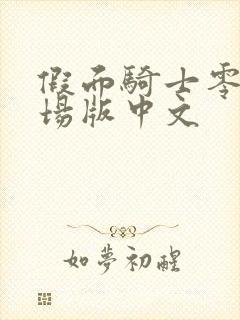 假面騎士零
場版中文
如夢初醒